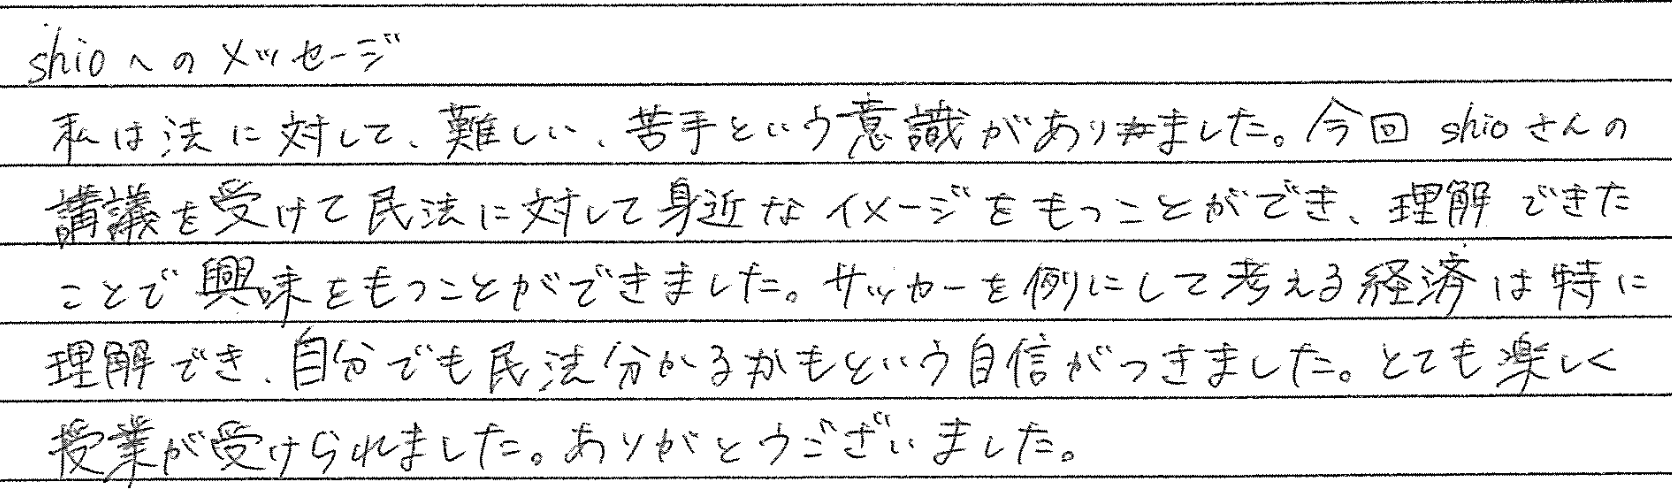 shioへのメッセージ
私は法に対して、難しい、苦手という意識がありました。今回shioさんの
講議を受けて民法に対して身近なイメージをもつことができ、理解できた
ことで興味をもつことができました。サッカーを例にして考える経済は特に
理解でき、自分でも民法分かるかもという自信がつきました。とても楽しく
授業が受けられました。ありがとうございました。